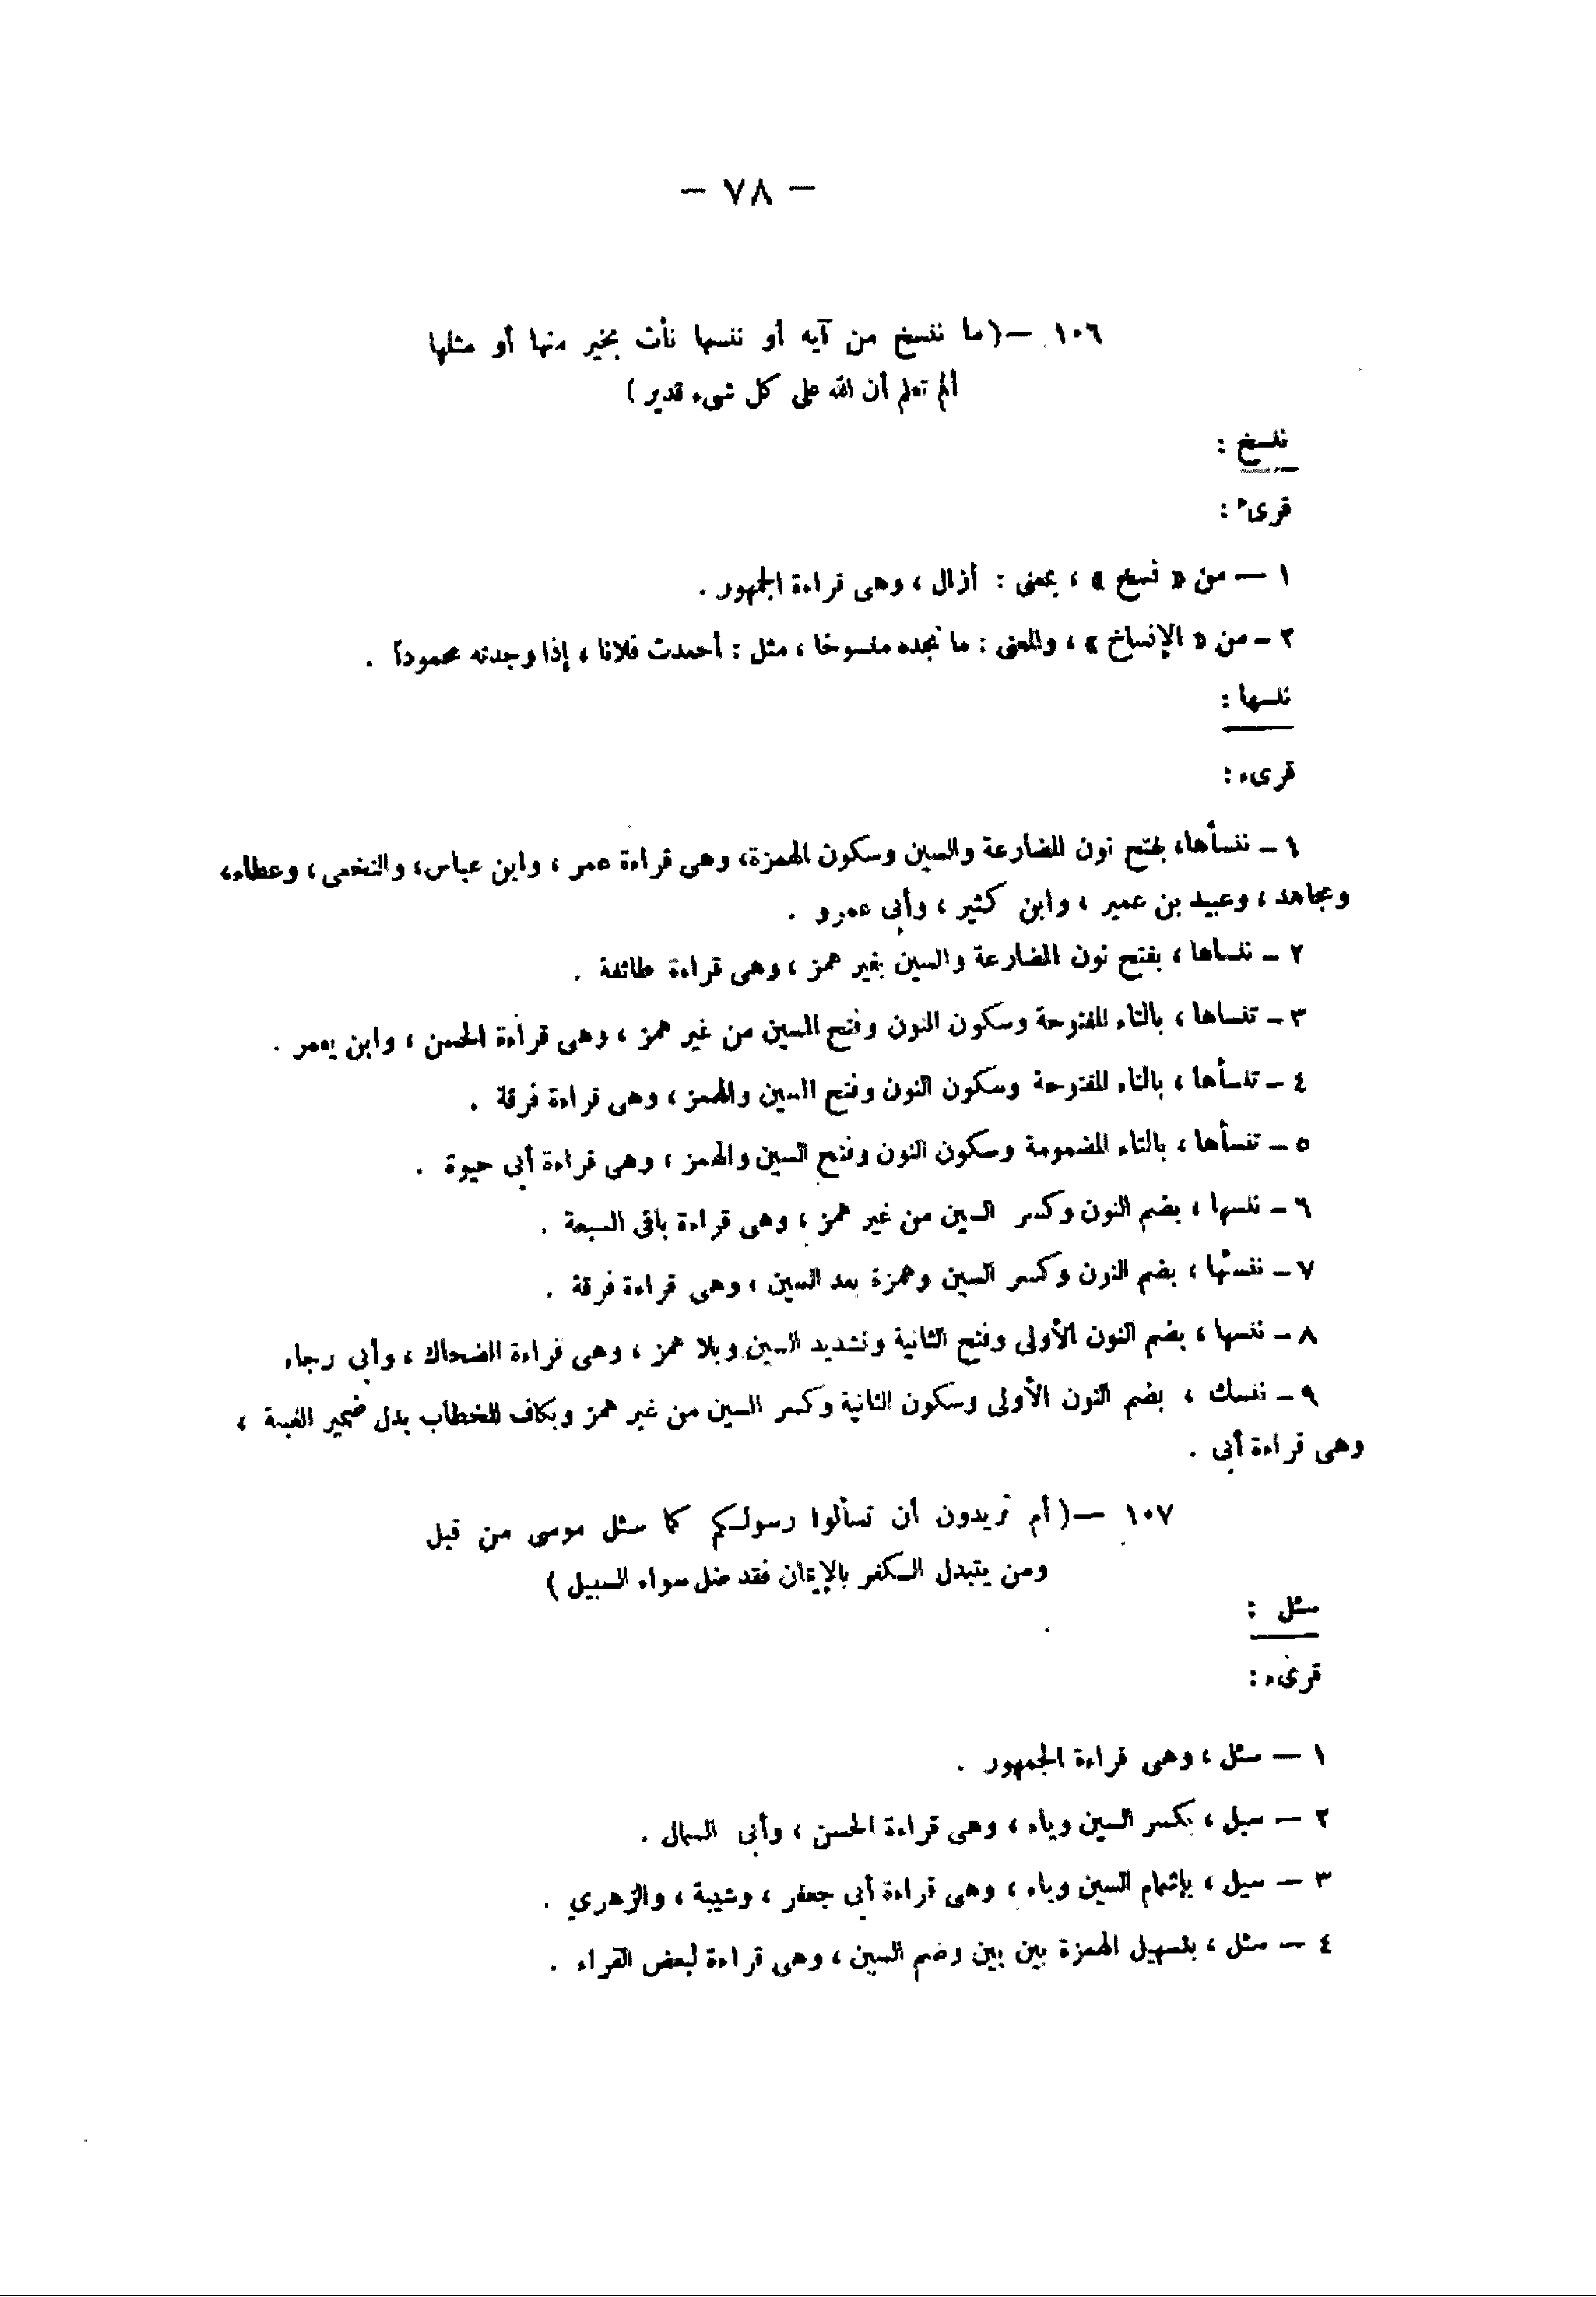 — ٧٨ —
١٠٦ — (ما ننسخ من آيه أو ننسها نأت بخير منها أو مثلها
ألم تعلم أن الله على كل شىء قدير )
ننسخ :
قرىء :
١ — من « نسخ » ، بمعنى : أزال ، وهى قراءة الجمهور .
٢ – من « الإنساخ » ، والمعنى : ما نجده منسوخا ، مثل : أحمدت فلانا ، إذا وجدته محموداً .
ننسها :
قرىء :
١ – ننسأها، بفتح نون المضارعة والسين وسكون الهمزة، وهى قراءة عمر ، وابن عباس، والنخعى ، وعطاء،
ومجاهد ، وعبيد بن عمير ، وابن كثير ، وأبى عمرو .
٢ – ننساها ، بفتح نون المضارعة والسين بغير همز ، وهى قراءة طائفة .
٣ – تنساها ، بالتاء المفتوحة وسكون النون وفتح السين من غير همز ، وهى قراءة الحسن ، وابن يعمر .
٤ – تنسأها ، بالتاء المفتوحة وسكون النون وفتح السين والهمز ، وهى قراءة فرقة .
٥ – تنسأها ، بالتاء المضمومة وسكون النون وفتح السين والهمز ، وهى قراءة أبى حيوة .
٦ – ننسها ، بضم النون وكسر السين من غير همز ، وهى قراءة باقى السبعة .
٧ – ننسئها ، بضم النون وكسر السين وهمزة بعد السين ، وهى قراءة فرقة .
٨ – ننسها ، بضم النون الأولى وفتح الثانية وتشديد السين وبلا همز ، وهى قراءة الضحاك ، وأبى رجاء
٩ – ننسك ، بضم النون الأولى وسكون الثانية وكسر السين من غير همز وبكاف للخطاب بدل ضمير الغيبة ،
وهى قراءة أبى .
١٠٧ — (أم تريدون أن تسألوا رسولكم كما سئل موسى من قبل
ومن يتبدل الكفر بالإيمان فقد ضل سواء السبيل )
سئل :
قرىء :
١ — سئل ، وهى قراءة الجمهور .
٢ — سيل ، بكسر السين وياء ، وهى قراءة الحسن ، وأبى السمال .
٣ — سيل ، بإشمام السين وياء ، وهى قراءة أبى جعفر ، وشيبة ، والزهري .
٤ — سئل ، بتسهيل الهمزة بين بين وضم السين ، وهى قراءة لبعض القراء .